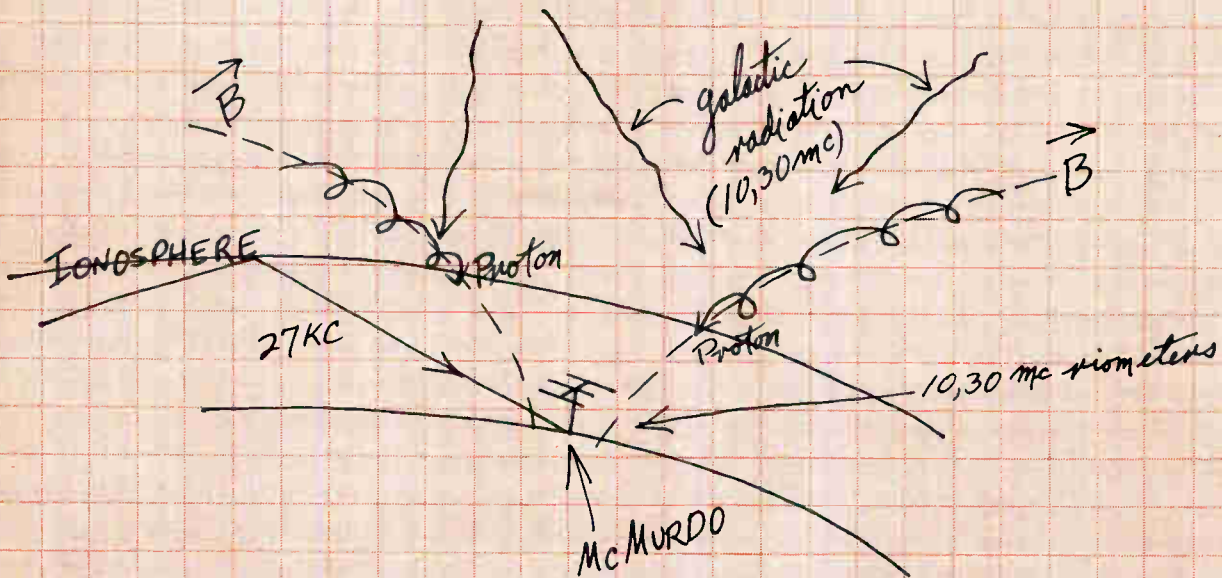 B
galactic
radiation
(10,30 mc)
B
IONOSPHERE
Proton
27KC
Proton
10,30 mc riometers
McMURDO